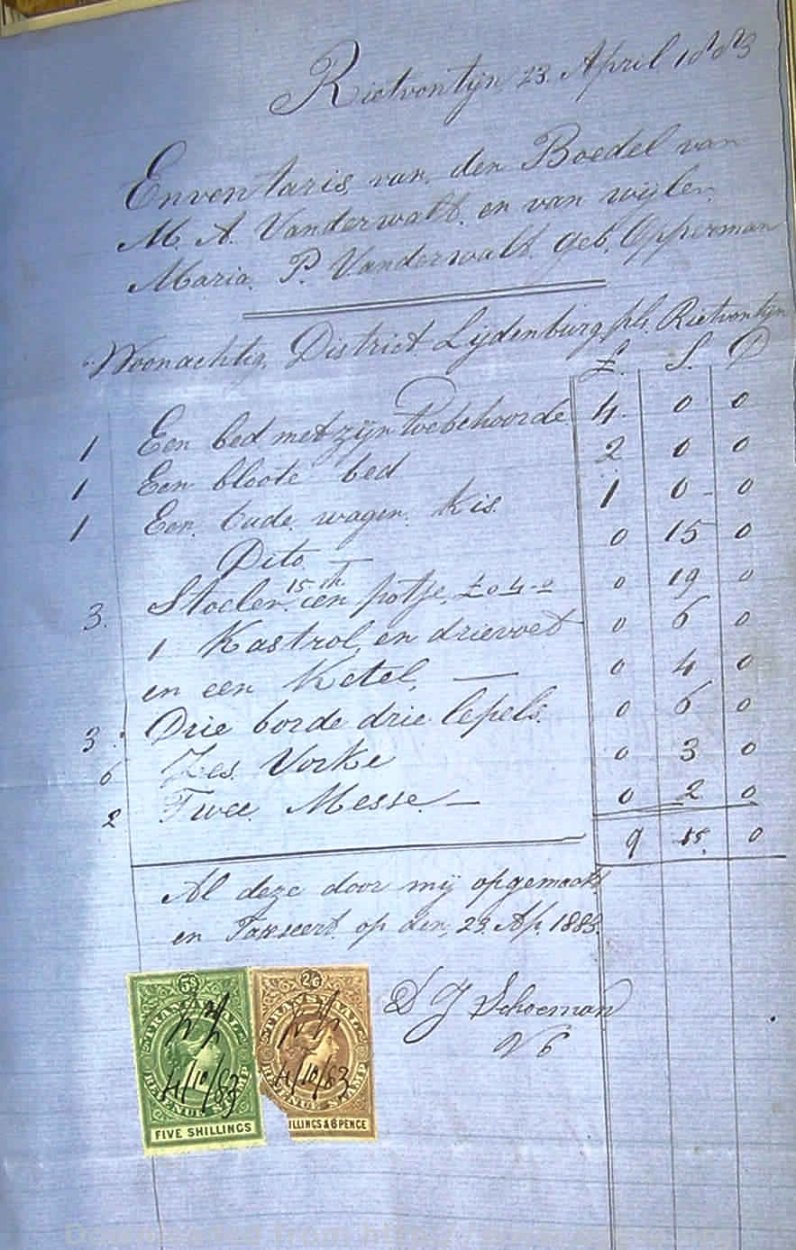 Rietvontyn 23. April 1883
Enventaris van den Boedel van
M. A. Vanderwalt en van wijlen
Maria. P. Vanderwalt. geb. Opperman
Woonachtig. District. Lijdenburg, pls. Rietvontyn
£. S. D
1 Een bed met zijn toebehoorde 4. 0 0
1 Een bloote bed 2 0 0
1 Een. Oude. wagen. Kis. 1 0 - 0
Dito — 0 15 0
3. Stoelen 15 sh een potje £0 4-0 0 19 0
1 Kastrol, en drievoet 0 6 0
en een Ketel, — 0 4 0
3. Drie borde drie lepels. 0 6 0
6 Zes. Vorke 0 3 0
2 Twee. Messe — 0 2 0
9 15. 0
Al deze door mij opgemaakt
en Taxseert. op den, 23. Ap. 1883.
D J Schoeman
5s
TRANSVAAL
4/10/83
REVENUE STAMP
FIVE SHILLINGS
2/6
TRANSVAAL
4/10/83
REVENUE STAMP
ILLINGS & 6 PENCE